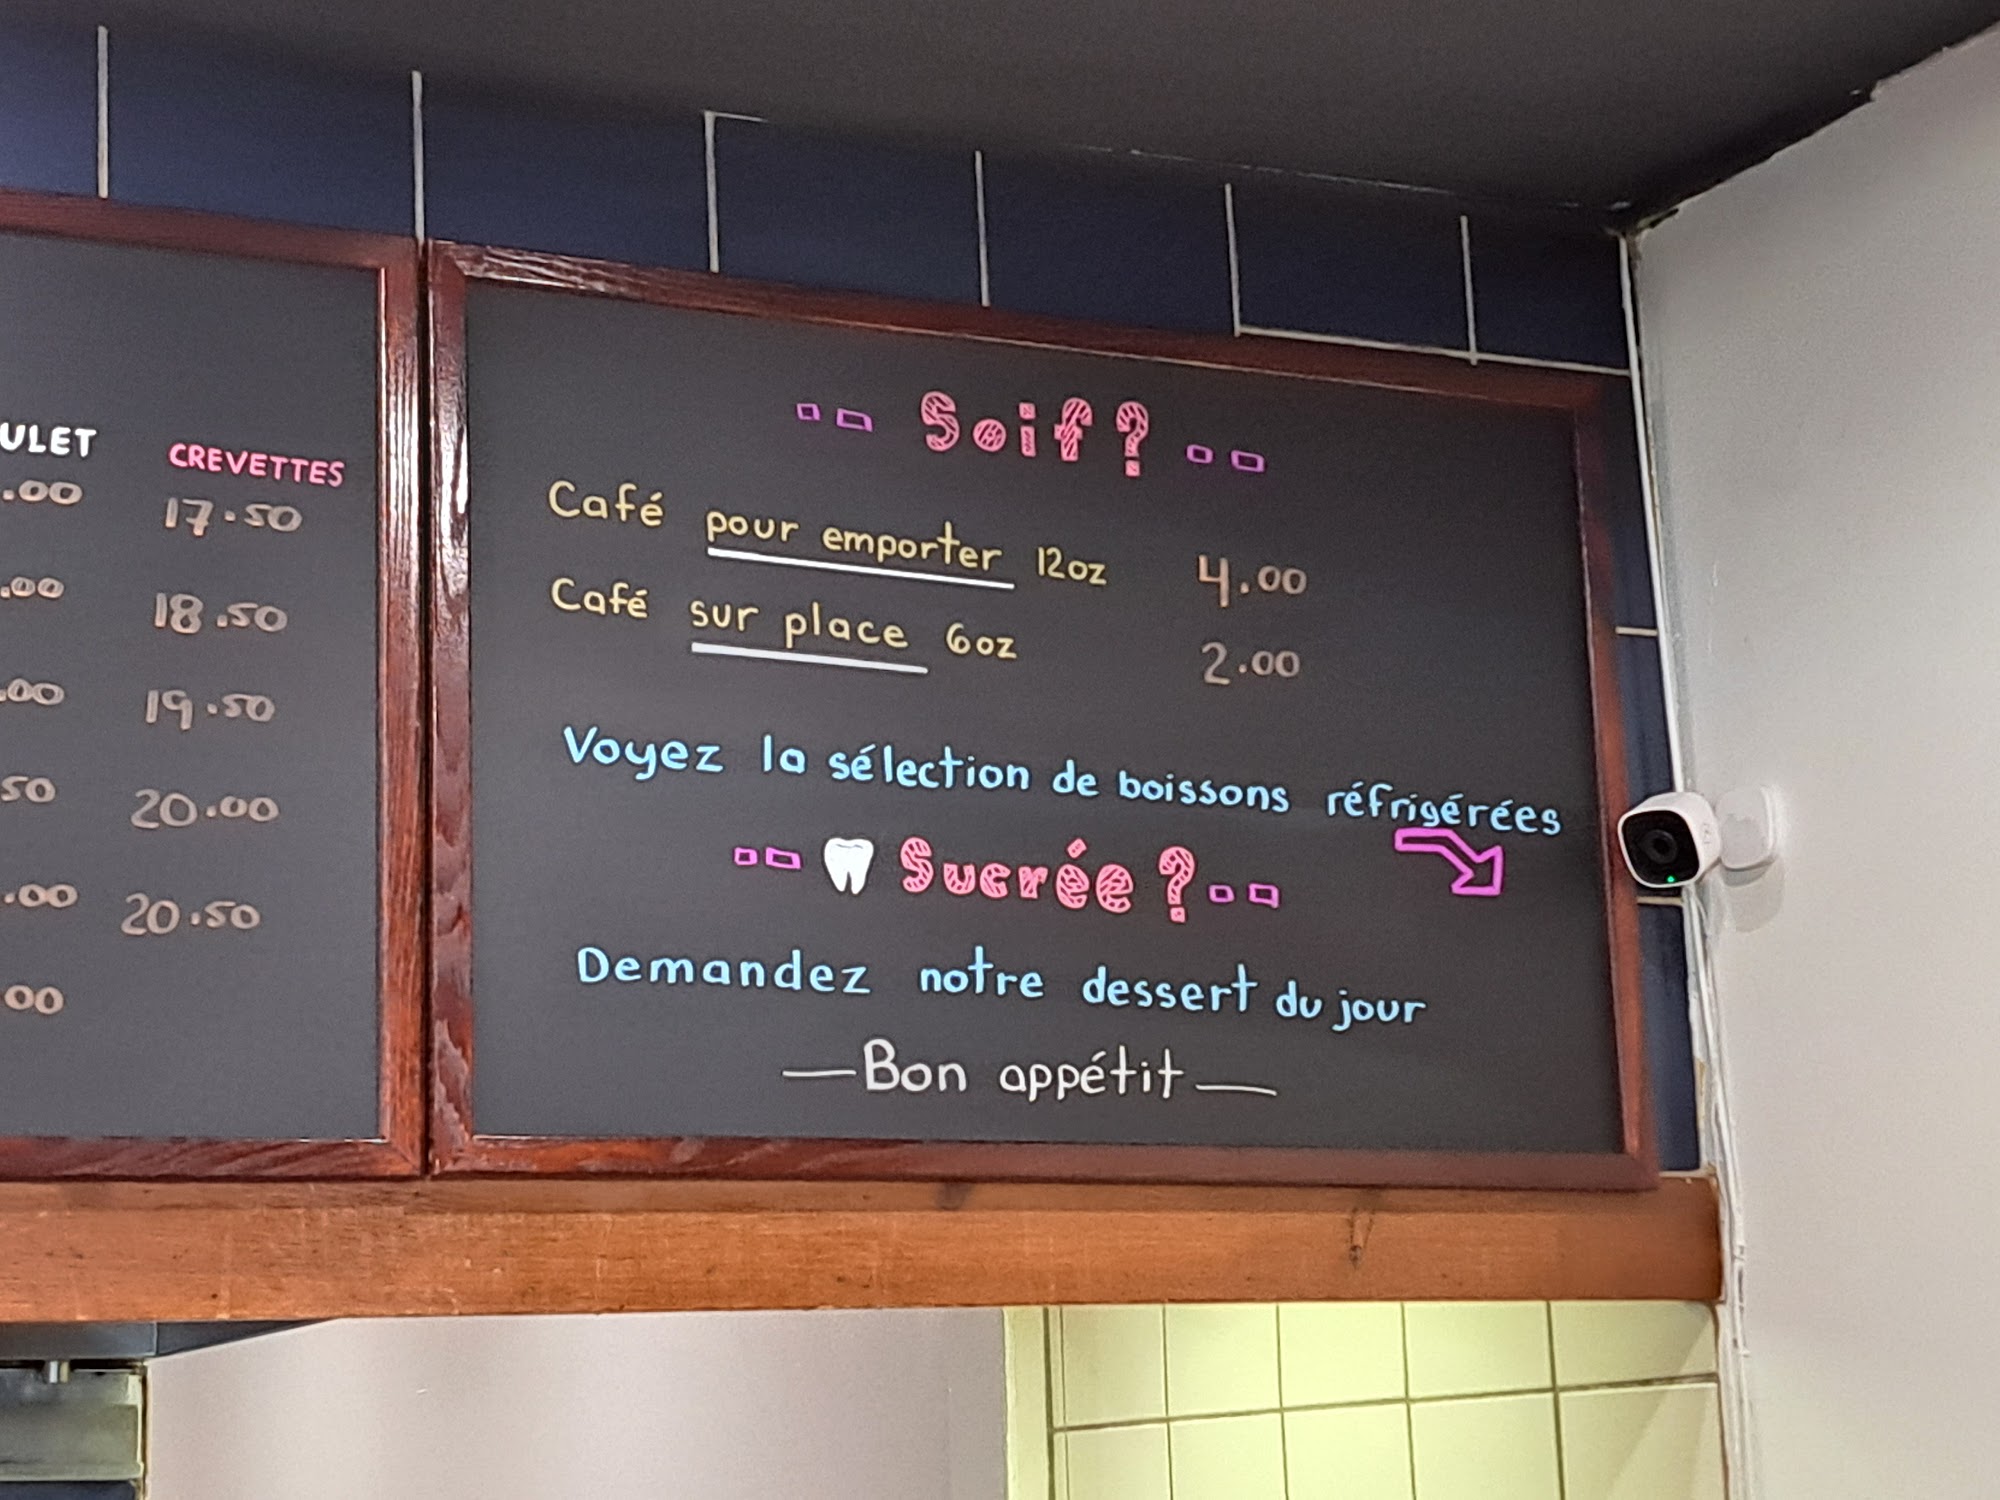 CREVETTES
.00 17.50
.00 18.50
.00 19.50
50 20.00
.00 20.50
00
Soif ?
Café pour emporter 12oz 4.00
Café sur place 6oz 2.00
Voyez la sélection de boissons réfrigérées
Sucrée ?
Demandez notre dessert du jour
Bon appétit